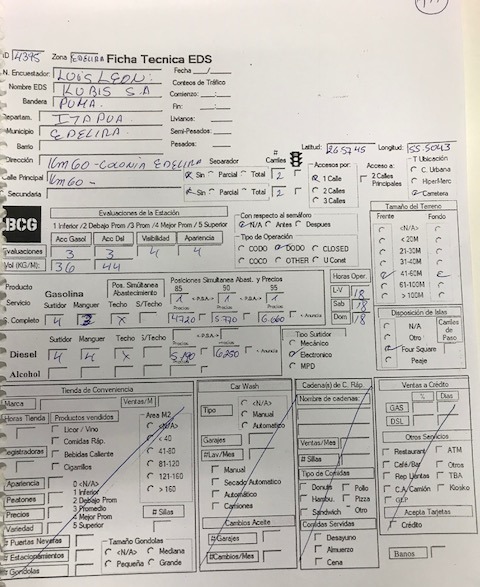 ID 4395 Zona EDELIRA Ficha Tecnica EDS
N. Encuestador LUIS LEON. Fecha __/__
Nombre EDS KUBIS S.A Conteos de Tráfico
Bandera PUMA. Comienzo: __:__
Departam. ITAPUA Fin: __:__
Municipio EDELIRA Livianos:
Barrio Semi-Pesados:
Pesados:
Latitud: 265745 Longitud: 55.5043
Dirección Km60 - COLONIA EDELIRA Separador # Carriles
Calle Principal Km60 - Sin Parcial Total 2
Secundaria Sin Parcial Total 2
Accesos por: 1 Calle 2 Calles 3 Calles
Acceso a: 2 Calles Principales
T Ubicación
C. Urbana
HiperMerc
Carretera
BCG
Evaluaciones de la Estación
1 Inferior /2 Debajo Prom /3 Prom /4 Mejor Prom / 5 Superior
Acc Gasol Acc Dsl Visibilidad Apariencia
Evaluaciones 3 3 4 4
Vol (KG/M): 36 44
Con respecto al semáforo
<N/A> Antes Despues
Tipo de Operación
CODO DODO CLOSED
COCO OTHER U Const
Tamaño del Terreno
Frente Fondo
<N/A>
< 20M
21-30M
31-40M
41-60M
61-100M
> 100M
Producto Gasolina Pos. Simultánea Abastecimiento Posiciones Simultánea Abast. y Precios
85 90 95
Servicio Surtidor Manguer Techo S/Techo 1 <-P.S.A.-> 1 <-P.S.A.-> 1
Precios Precios Precios
S. Completo 4 X 4720 5.770 6.660 <- Anuncia
Horas Oper.
L-V 18
Sab 18
Dom 18
Diesel Surtidor Manguer Techo S/Techo <-P.S.A.->
4 4 X 5.190 6.250 <- Anuncia
Precios Precios
Alcohol
Tipo Surtidor
Mecánico
Electronico
MPD
Disposición de Islas
N/A
Otro
Four Square
Peaje
Carriles de Paso
Tienda de Conveniencia
Marca Ventas/M
Horas Tienda Productos vendidos
Licor / Vino
Comidas Ráp.
Registradoras Bebidas Caliente
Cigarrillos
Area M2
<N/A>
< 40
41-80
81-120
121-160
> 160
Apariencia
Peatones
Precios
Variedad
0 <N/A>
1 Inferior
2 Debajo Prom
3 Promedio
4 Mejor Prom
5 Superior
# Sillas
# Puertas Nevefas
# Estacionamientos
# Gondolas
Tamaño Gondolas
<N/A> Mediana
Pequeña Grande
Car Wash
Tipo
<N/A>
Manual
Automático
Garajes
#Lav/Mes
Manual
Secado Automatico
Automático
Camiones
Cambios Aceite
# Garajes
#Cambios/Mes
Cadena(s) de C. Ráp.
Nombre de cadenas:
Ventas/Mes
# Sillas
Tipo de Comidas
Donuts Pollo
Hambu. Pizza
Sandwich Otro
Comidas Servidas
Desayuno
Almuerzo
Cena
Ventas a Crédito
% Dias
GAS
DSL
Otros Servicios
Restaurant ATM
Café/Bar Otros
Rep Llantas TBA
C.A./Camión Kiosko
GEP
Acepta Tarjetas
Crédito
Banos